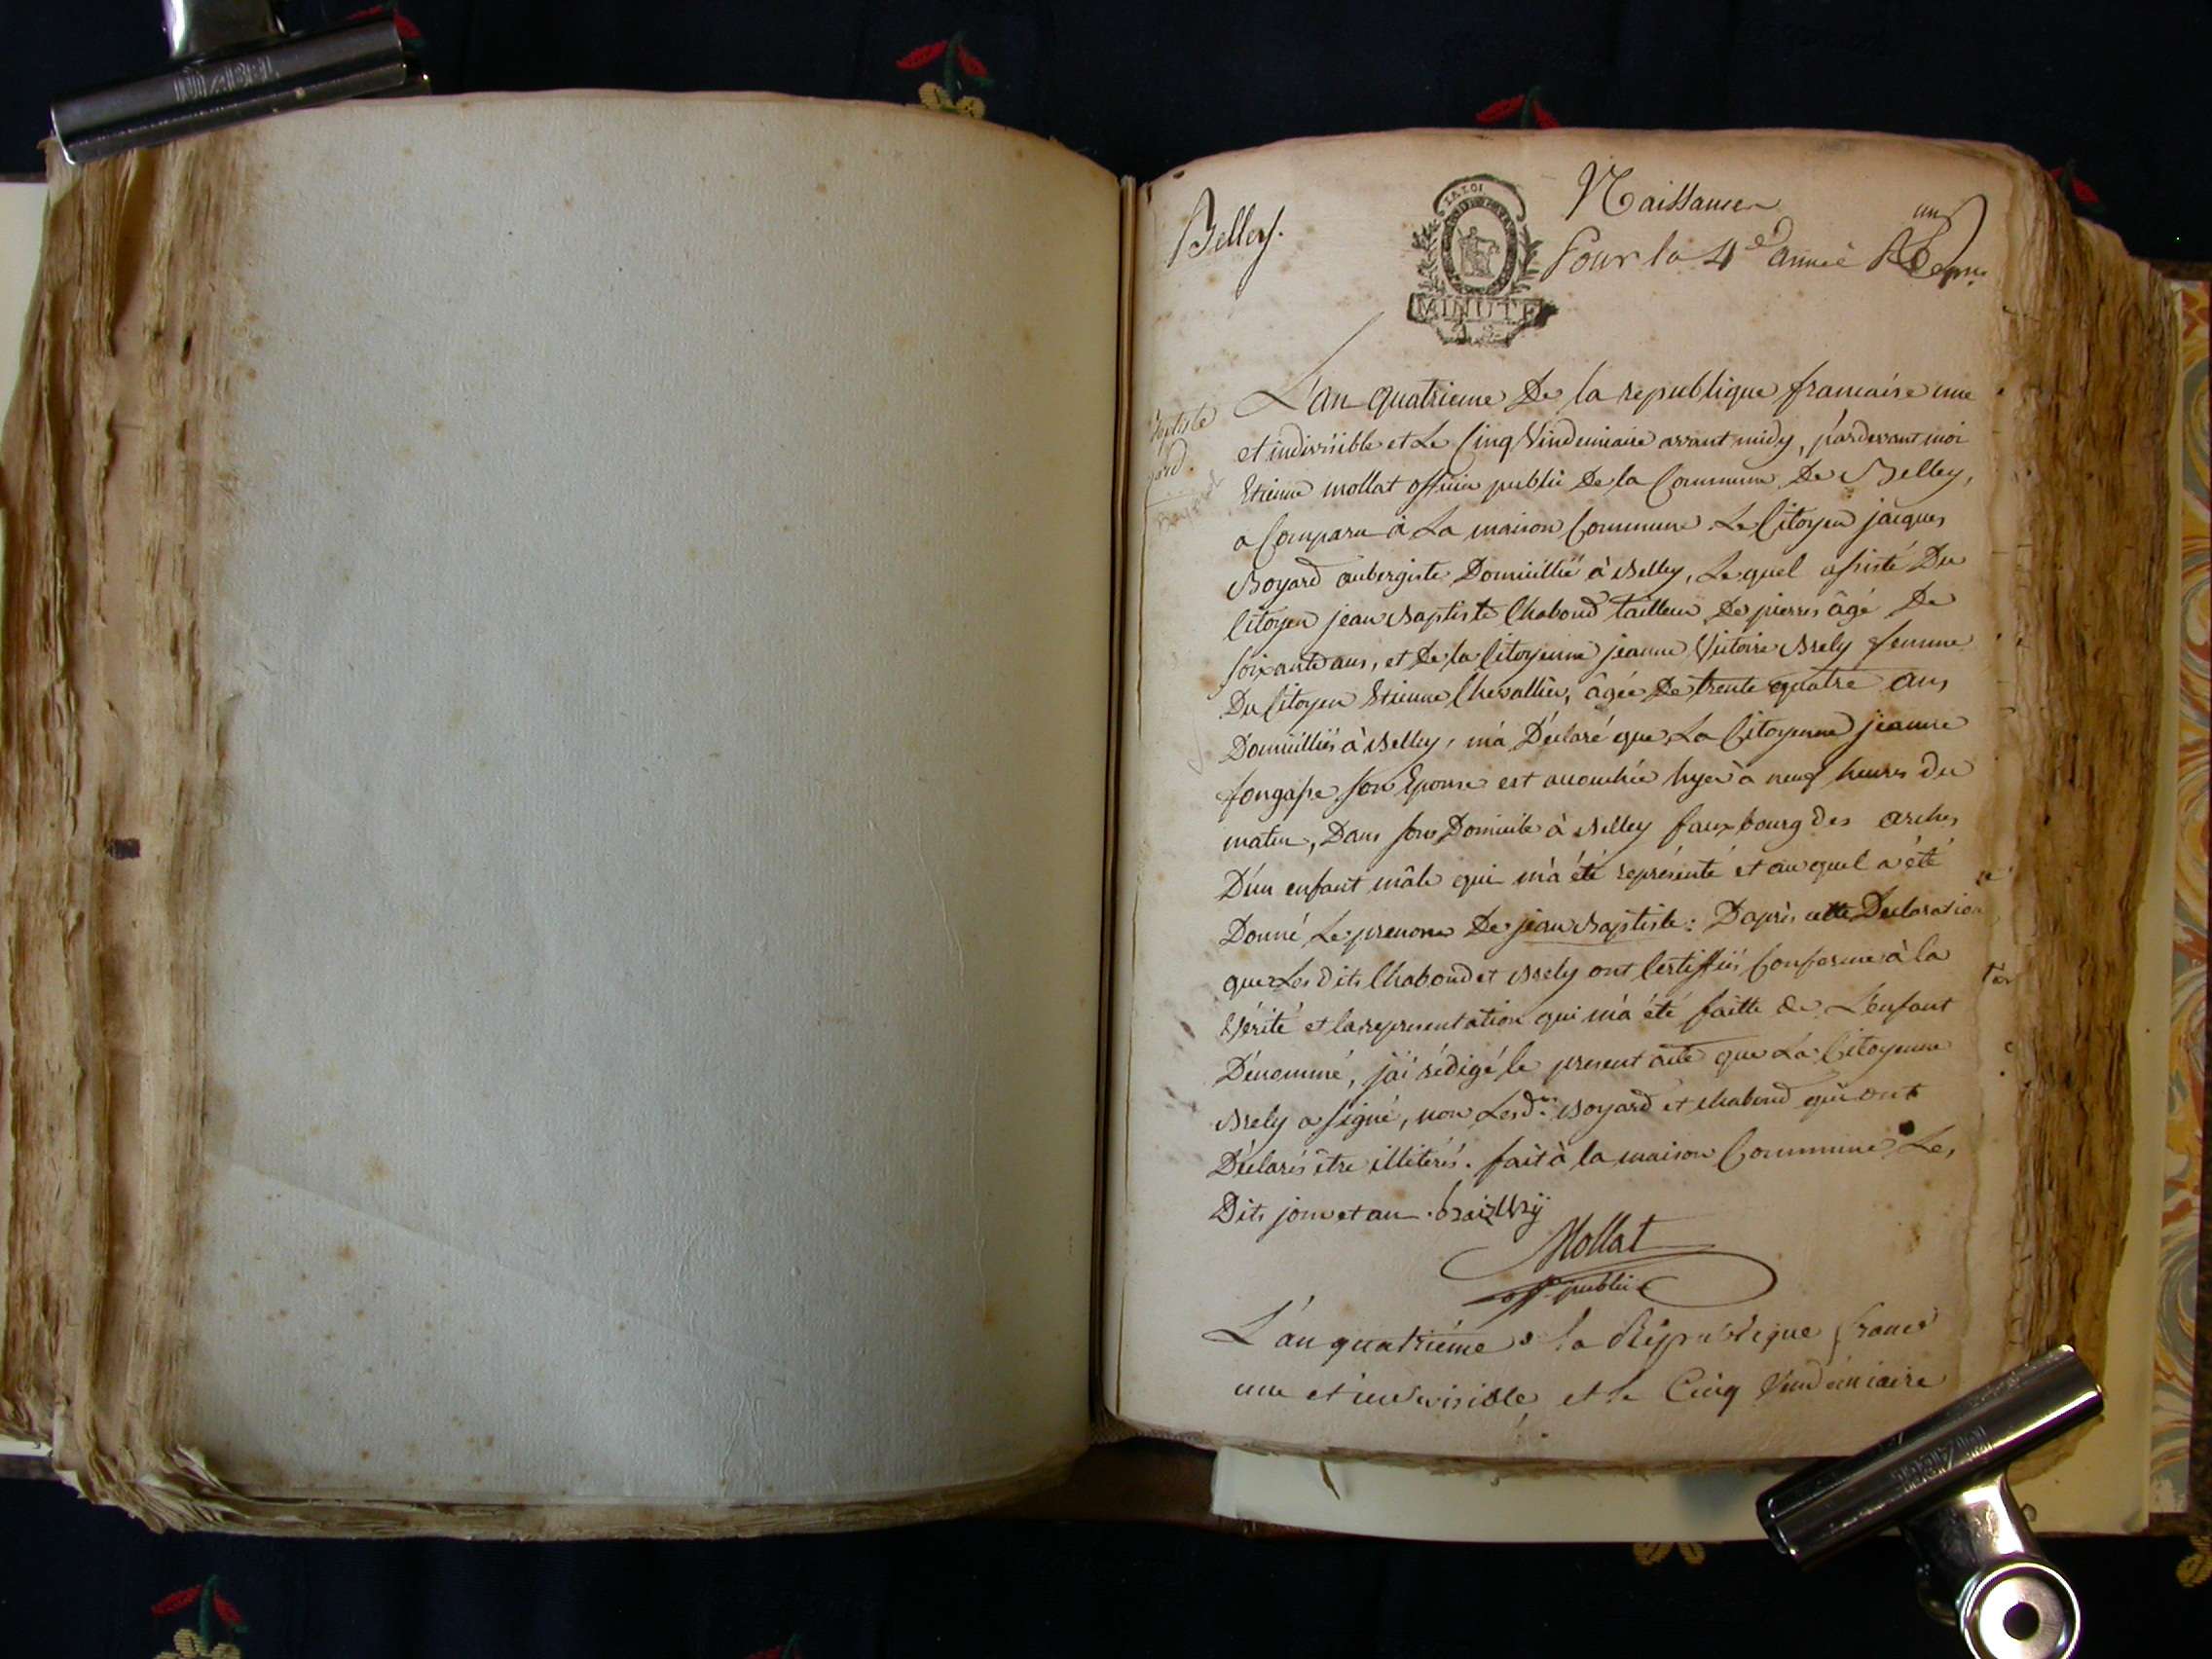 Belley.
Naissances
un
Pour la 4e année
LA LOI
MINUTE
L'an quatrieme De la republique francaise une
et indivisible et Le Cinq Vindemiaire avant midy, pardevant moi
Etienne mollat officier public De la Commune De Belley,
a Comparu à La maison Commune Le Citoyen jacques
Boyard aubergiste Domicillié à Belley, Lequel assisté Du
Citoyen jean Baptiste Chaboud tailleur De pierres âgé De
soixante ans, et De la Citoyenne jeanne Victoire Brely femme
Du Citoyen Etienne Chevallier, âgée De trente quatre ans
Domicilliés à Belley, m'a Déclaré que La Citoyenne jeanne
son Epouse est accouchée hyer à neuf heures du
matin, Dans son Domicile à Belley fauxbourg des arches
D'un enfant mâle qui m'a été représenté et auquel a été
Donné Le prenom De jean Baptiste : Daprès cette Declaration
que Les dits Chaboud et Brely ont Certiffiés Conforme à la
Vérité et la representation qui m'a été faitte de L'enfant
Dénommé, j'ai rédigé le present acte que La Citoyenne
Brely a signé, non Lesds. Boyard et chaboud qui ont
Déclarés être illiterés. fait à la maison Commune Les
Dits jour et an.
Mollat
off. public
L'an quatriéme la République franc
une et indivisible et le Cinq Vendémiaire